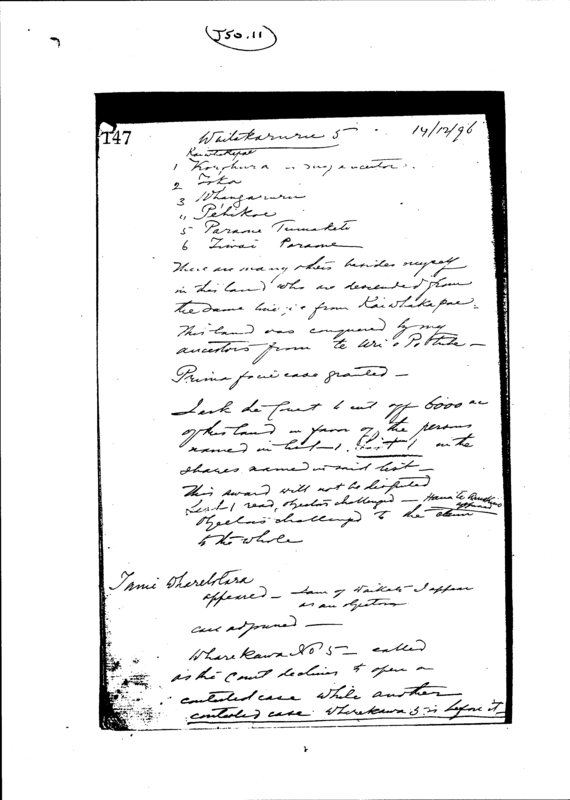 J50.11
147
Waitakaruru 5 14/12/96
Kaiwhakapae
1 Korohura is my ancestor
2 Toka
3 Whangaruru
4 Pehikoe
5 Parame Tumakete
6 Parame
There are many others besides myself
in this land who are descended from
the same line i.e from Kaiwhakapae.
This land was conquered by my
ancestors from te Uri o Pohtuka —
Prima facie case granted —
I ask the Court to cut off 6000 ac
of this land in favor of the persons
named in list 1. List 1 in the
shares named in said list —
This award will not be disputed
List 1 read, objectors challenged — Hami Te
appeared
Objectors challenged to the claim
to the whole
Tamie
appeared — I am of Waikato I appear
as an objector
case adjourned —
Wharekawa No 5 — called
as the Court declines to open a
contested case while another
contested case Wharekawa 5 is before it —